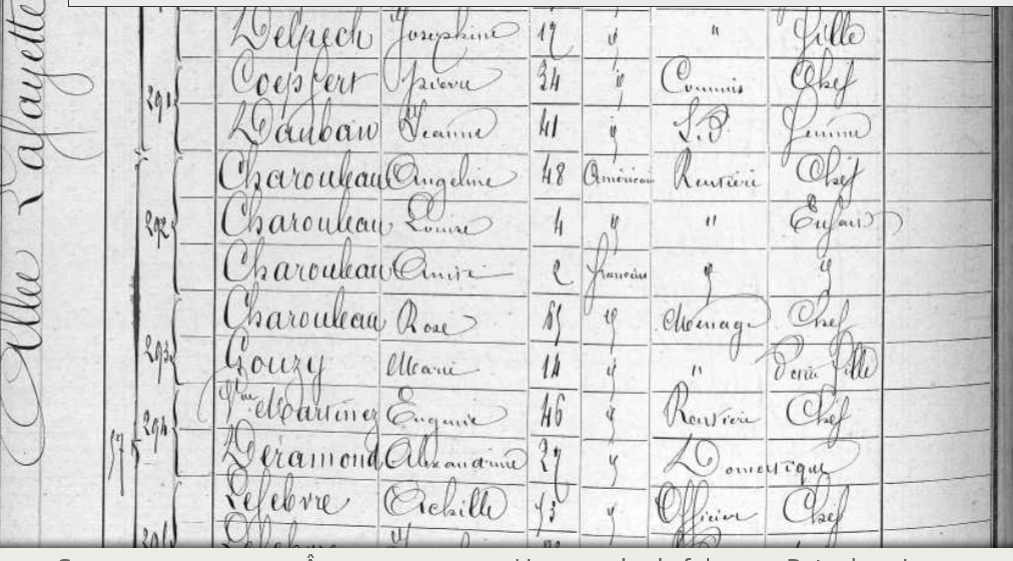 Allée Lafayette
Delpech Joséphine 17 " " fille
291 Coepfert pierre 34 " Commis Chef
Dauban Jeanne 41 " S.P. femme
Charouleau Angeline 48 Américain Rentière Chef
292 Charouleau Louise 4 " " Enfant
Charouleau 2 française " "
Charouleau Rose " Ménage Chef
293 Gouzy Marie 14 " " Petite fille
294 Vve Martinez Eugénie 46 " Rentière Chef
57 Déramond Alexandrine 27 " Domestique
Lefebvre Achille 73 " Officier Chef